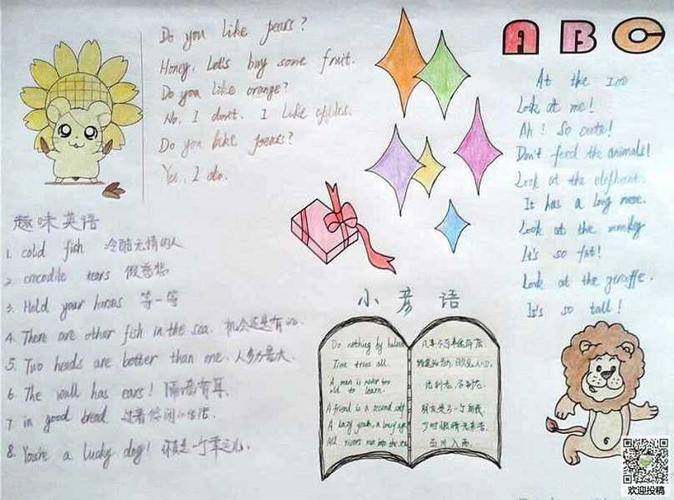 Do you like pears?
Honey, Let's buy some fruit.
Do you like orange?
No, I don't. I like apples.
Do you like pears?
Yes, I do.
A B C
At the zoo
Look at me!
Ah! So cute!
Don't feed the animals!
Look at the elephant.
It has a long nose.
Look at the monkey
It's so fat!
Look at the giraffe.
It's so tall!
趣味英语
1. cold fish 冷酷无情的人
2. crocodile tears 假慈悲
3. Hold your horses 等一等
4. There are other fish in the sea. 机会还是有的.
5. Two heads are better than one. 人多力量大.
6. The wall has ears! 隔墙有耳.
7. in good bread 过着悠闲的生活
8. You're a lucky dog! 你真是一个幸运儿.
小 彦 语
Do nothing by halves
Time tries all.
A man is never too
old to learn.
A friend is a second self
A lazy youth, a lousy age
All rivers run into the sea
活到老,学到老.
百川入海.
欢迎投稿